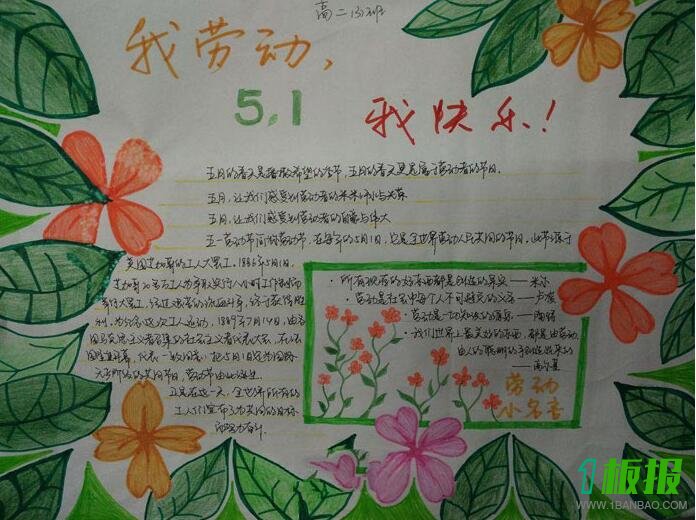 高二(3)班
我劳动,
5.1
我快乐!
五月的春天是播撒希望的季节,五月的春天更是属于劳动者的节日。
五月,让我们感受到劳动者的
与光荣
五月,让我们感受到劳动者的
与伟大
五一劳动节简称劳动节,在每年的5月1日,它是全世界劳动人民共同的节日。此节源于
美国芝加哥的工人大罢工。1886年5月1日,
芝加哥的
工人为争取实行八小时工作制而
举行大罢工,经过
的流血斗争,终于获得胜
利。为纪念这次工人运动,1889年7月14日,由各
国马克思主义者召集的社会主义者代表大会,在法
国
开幕,代表一致同意:把5月1日定为国际
无产阶级的共同节日,劳动节由此诞生。
正是在这一天,全世界所有的
工人们宣布了为共同的目标
而努力奋斗。
· 所有现存的好东西都是创造的果实——米尔
· 劳动是社会中每个人不可避免的义务——卢梭
· 劳动是一切
的
——陶铸
· 我们世界上最美好的东西,都是由劳动、
由人的聪明的手创造出来的
——高尔基
劳动
小名言
1板报
WWW.1BANBAO.COM